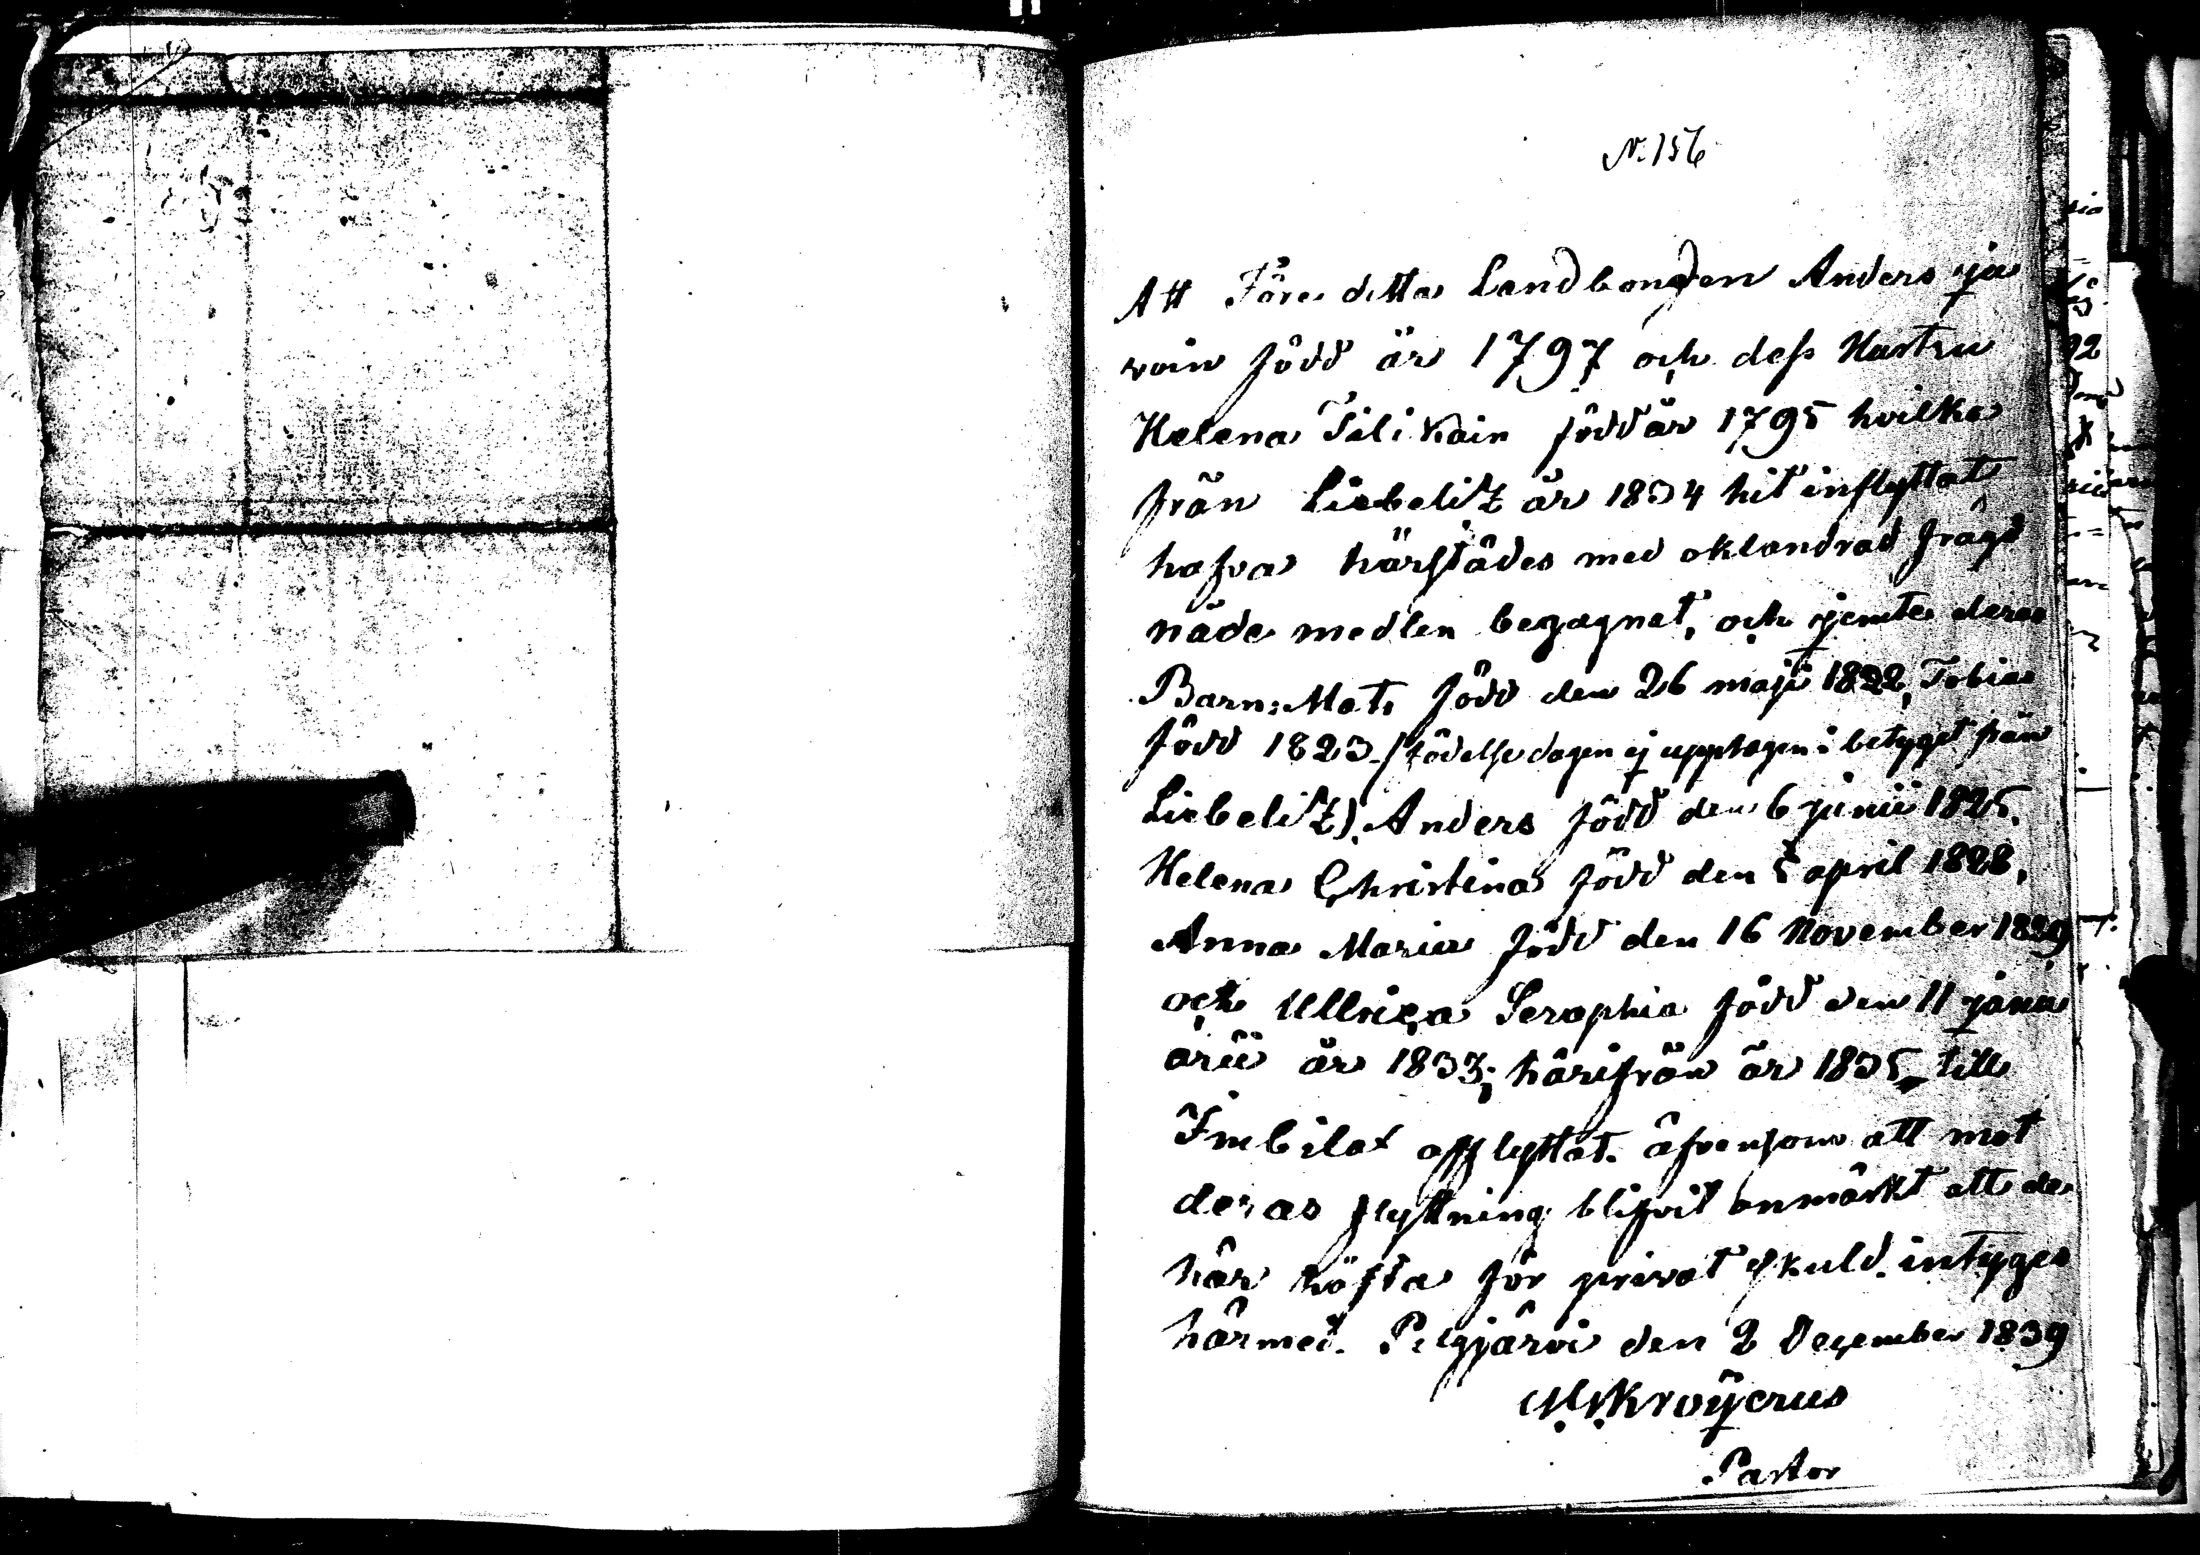 N: 156
Att Före detta Landbonden Anders ja
roin född år 1797 och dess Hustru
Helena Tilikain född år 1795 hvilka
från Liebelitz år 1834 hit inflyttat
hafva härstädes med oklandrad frägd
nåde medlen begagnat, och jemte deras
Barn: Mats född den 26 maji 1822, Tobias
född 1823 /födelse dagen ej upptagen i betyget från
Liebelitz). Anders född den 6 junii 1825,
Helena Christina född den 5 april 1828,
Anna Maria född den 16 November 1829
och Ullrica Seraphia född den 11 janu
arii år 1833; härifrån år 1835 till
Imbilax afflyttat. äfvensom att mot
deras flyttning blifvit anmärkt att de
här häfta för privat skuld. intyges
härmed. Pelgjärvi den 2 December 1839
Kroÿerus
Pastor